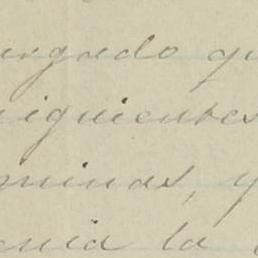 urgado qu
iguientes
minas, y
enia la